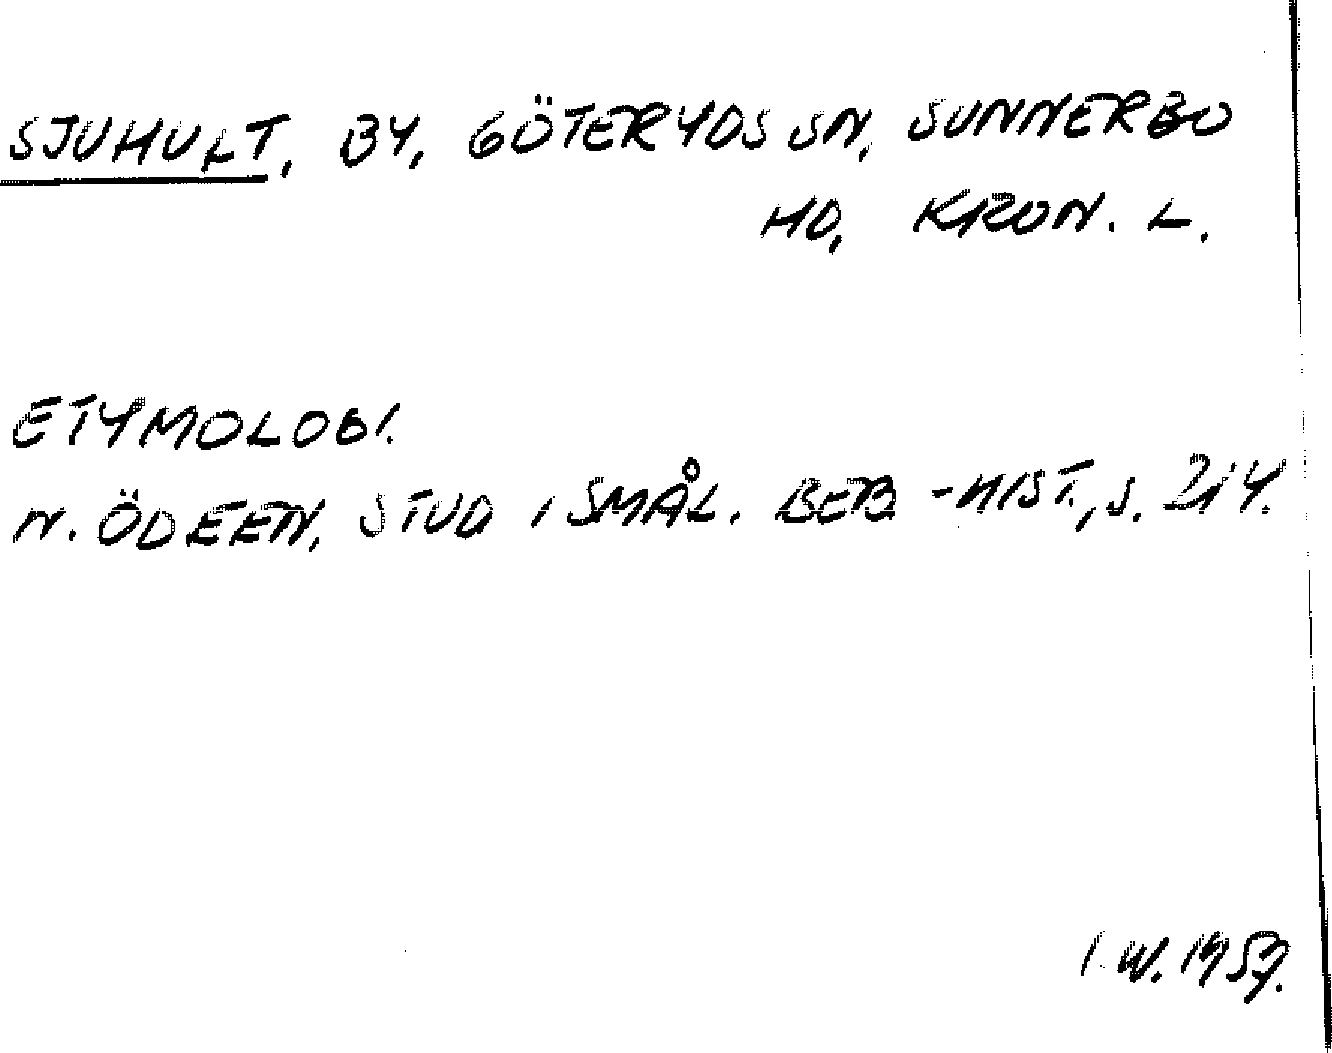 SJUHULT, BY, GÖTERYDS SN, SUNNERBO
HD, KRON. L.
ETYMOLOGI.
N. ÖDEEN, STUD I SMÅL. BEB-HIST., S. 214.
I.W. 1957.